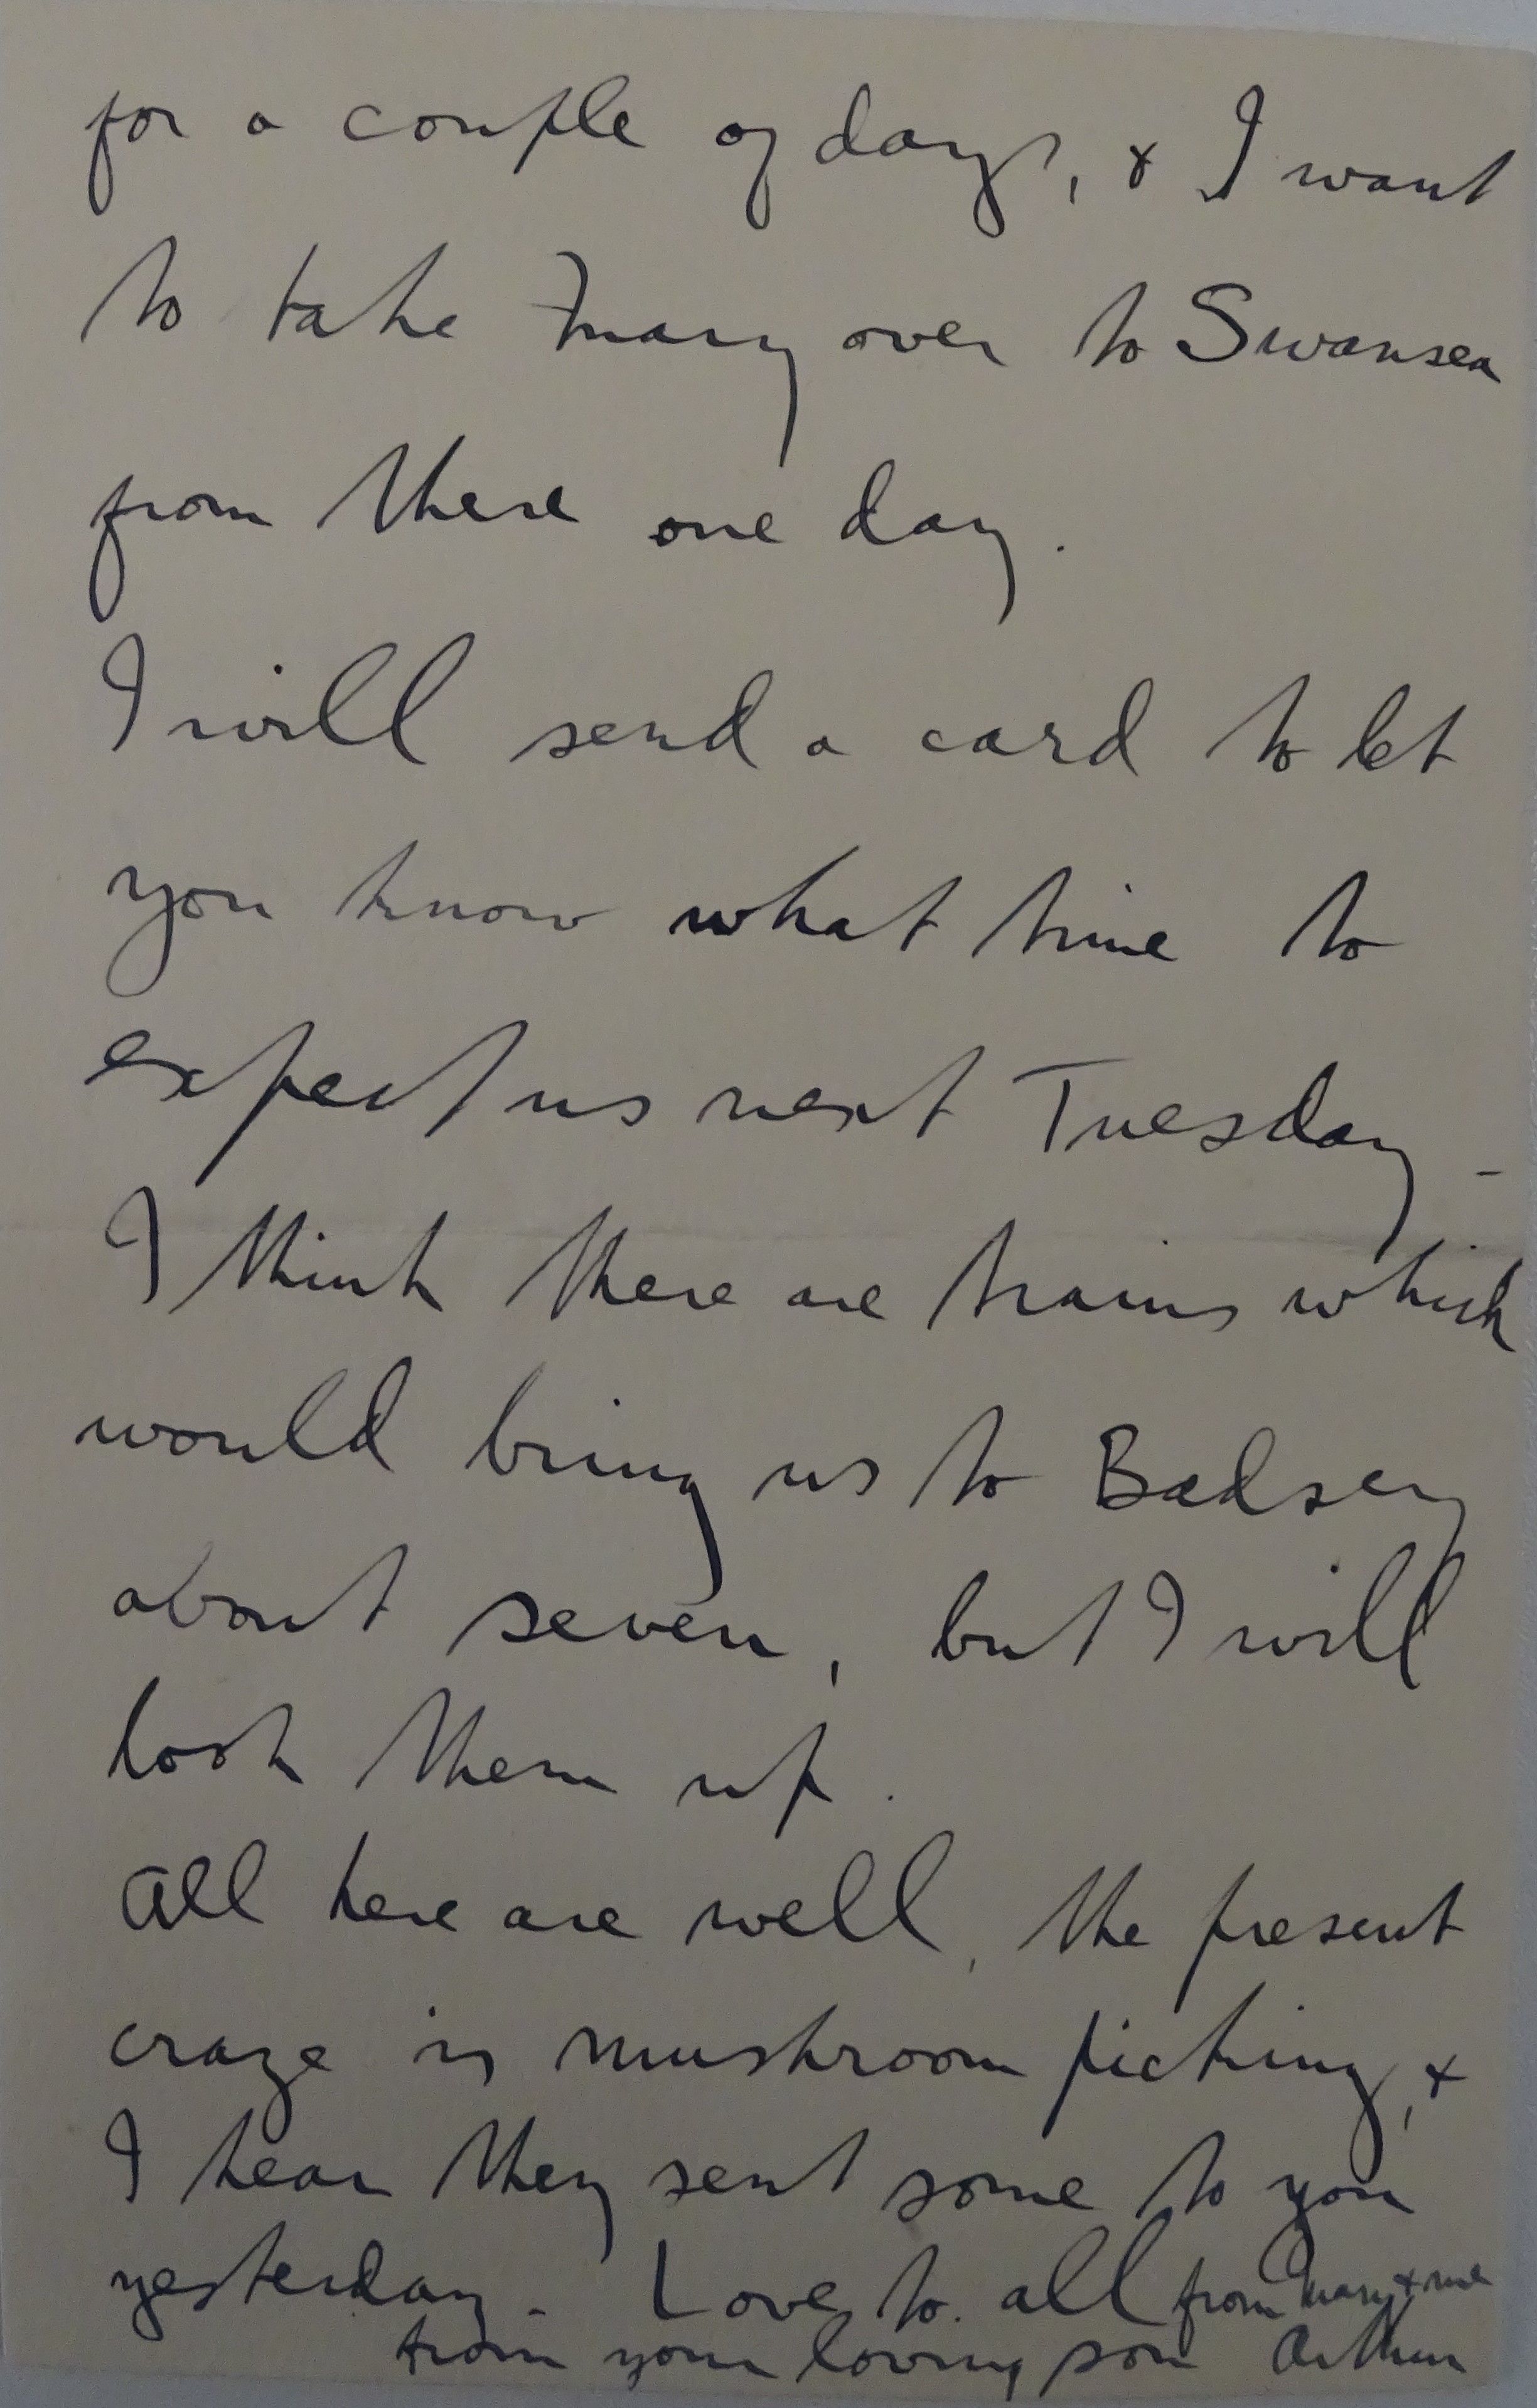 for a couple of days, & I want
to take Mary over to Swansea
from there one day.
I will send a card to let
you know what time to
expect us next Tuesday -
I think there are trains which
would bring us to Badsey
about seven, but I will
look them up.
All here are well, the present
craze is mushroom picking, &
I hear they sent some to you
yesterday. Love to all from Mary & me
from your loving son Arthur